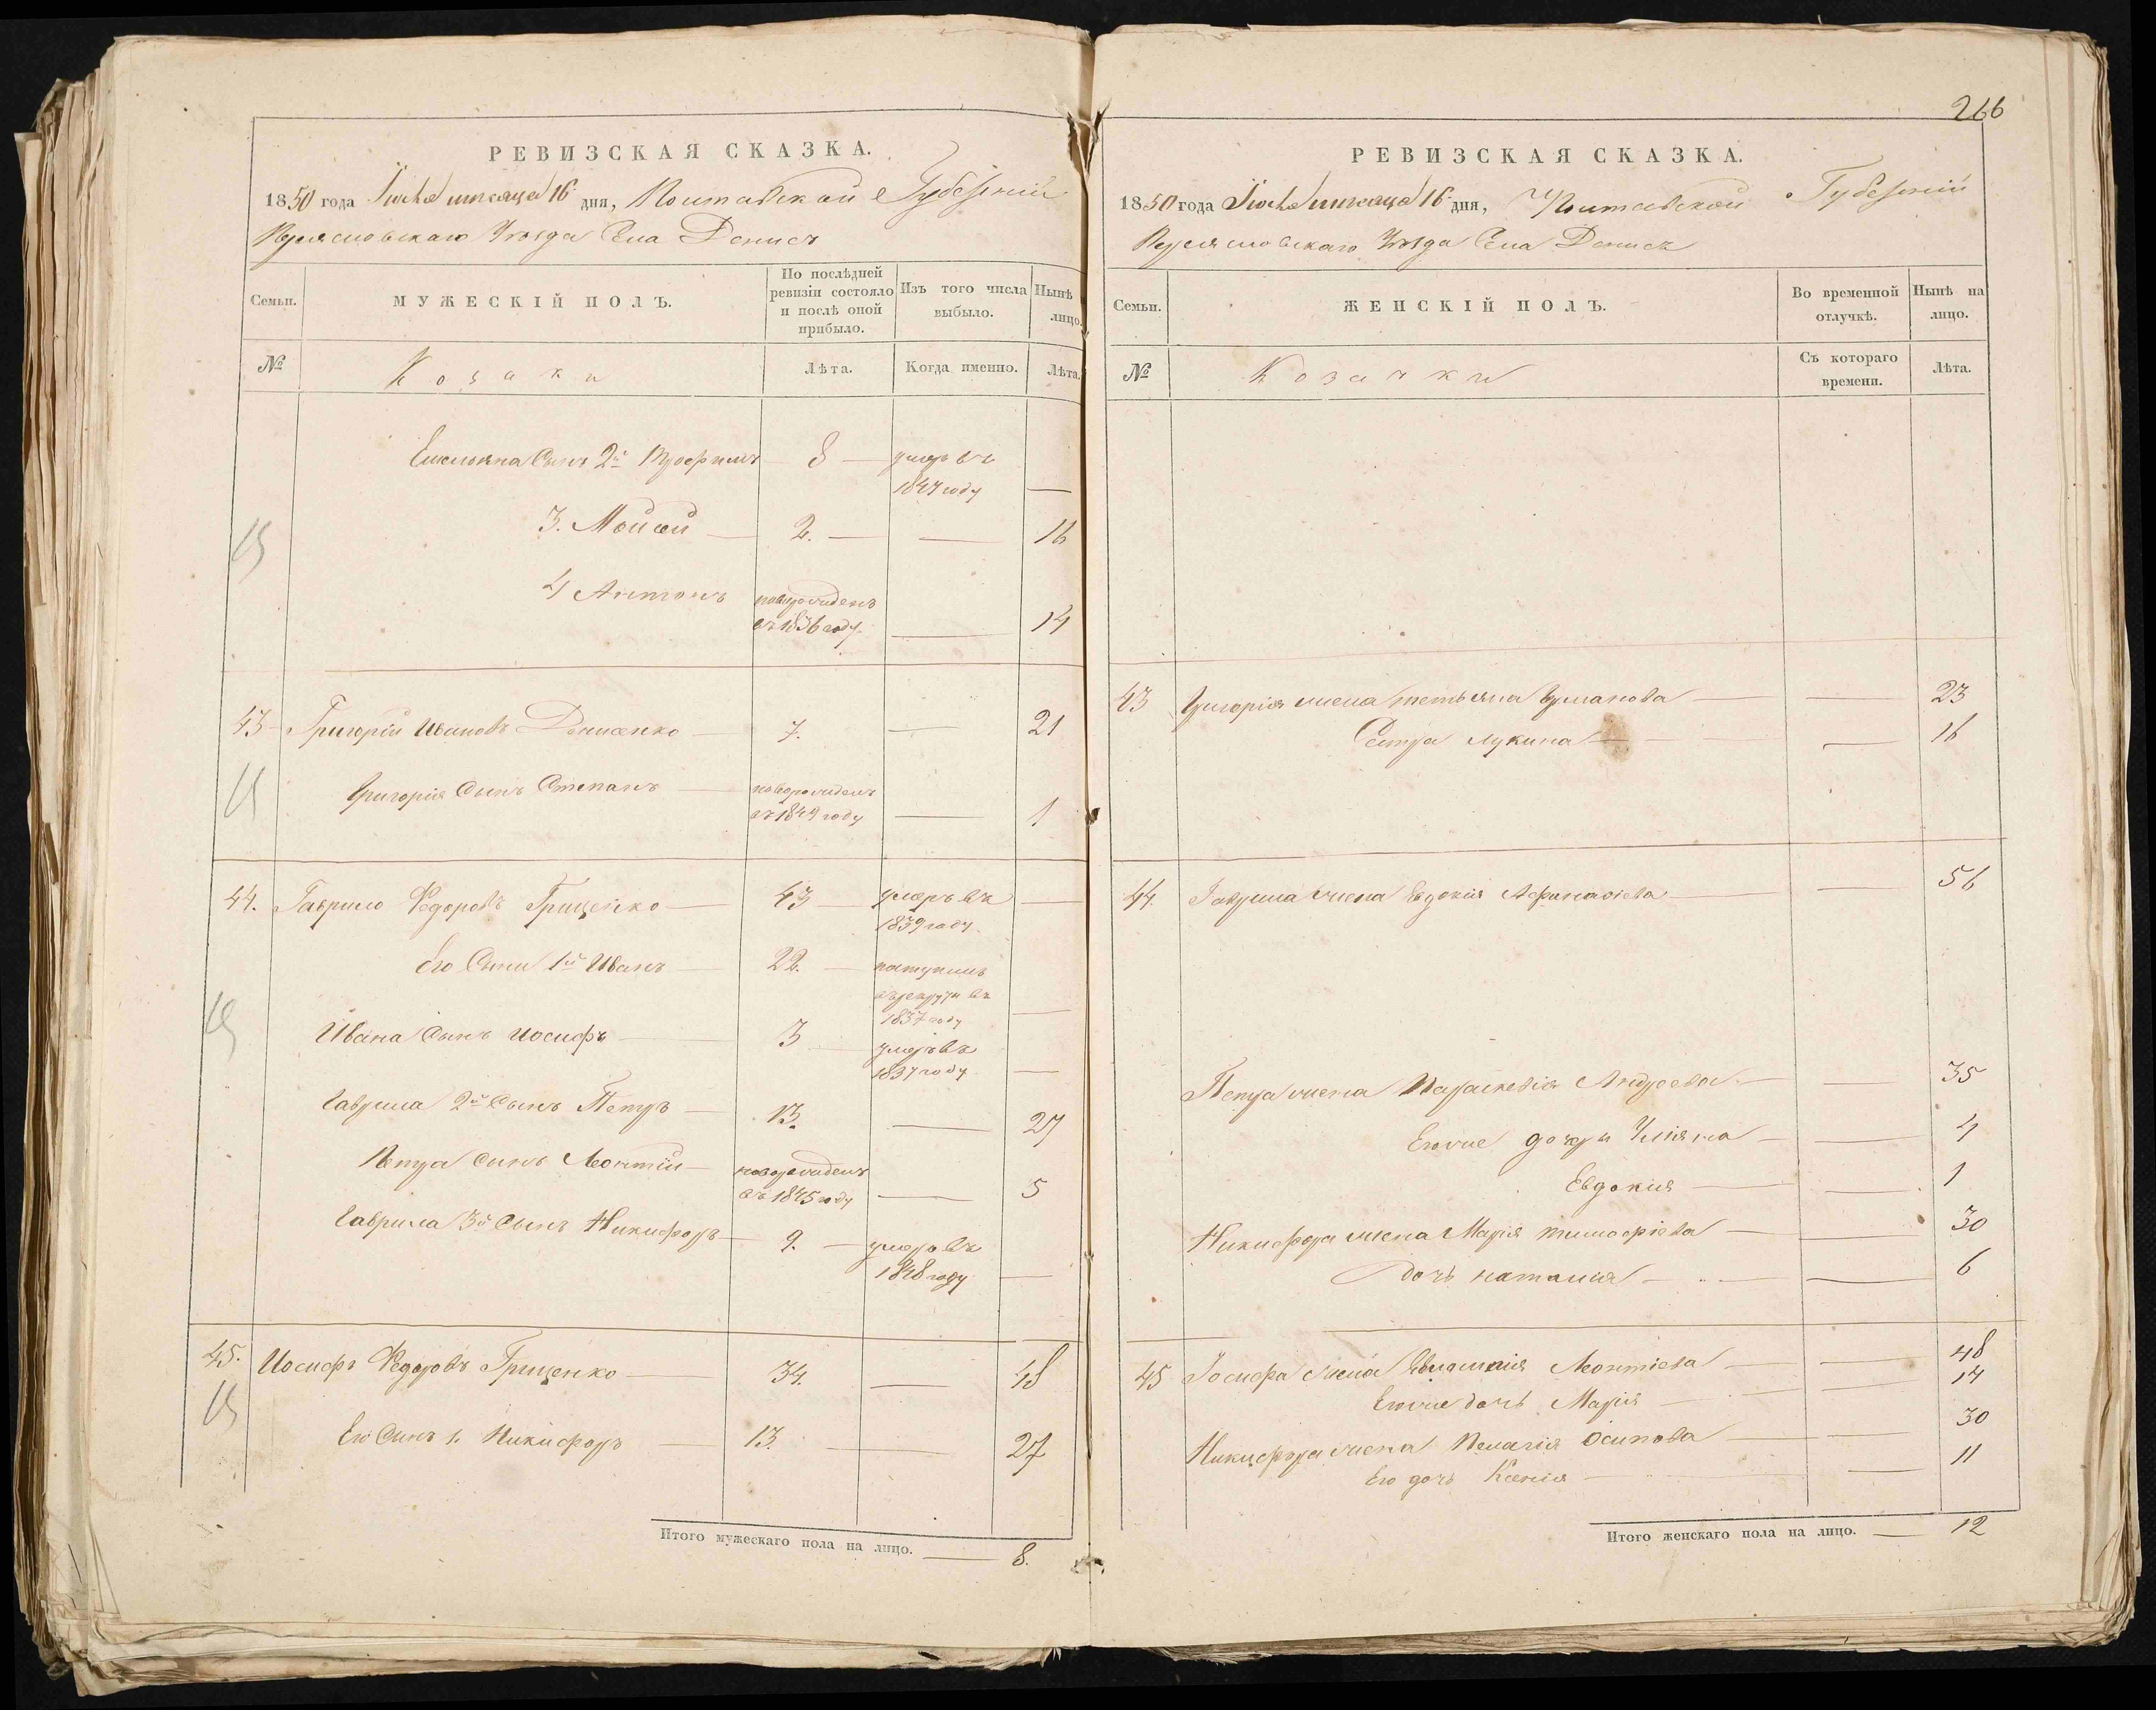 РЕВИЗСКАЯ СКАЗКА.
1850 года Июня месяца 16 дня, Полтавской Губерніи
Переясловскаго Уезда Села Денисъ
Семьи.
МУЖЕСКІЙ ПОЛЪ.
По послѣдней ревизіи состояло и послѣ оной прибыло.
Изъ того числа выбыло.
Нынѣ лицо.
№
Козаки
Лѣта.
Когда именно.
Лѣта.
Сынъ 2й Трофимъ 8 умеръ въ
1847 году
3. Мойсей 2. 16
4 Антонъ новорожденъ
въ 1836 году. 14
43 Григорій Ивановъ Денисенко 7. 21
Григорія Сынъ Степанъ новорожденъ
въ 1849 году 1
44. Гаврило Федоровъ Грищенко 43 умеръ въ
1839 году.
Его Сыни 1й Иванъ 22. поступилъ
въ рекруты въ
1837 году
Ивана Сынъ Иосифъ 3 умеръ въ
1837 году
Гаврила 2й Сынъ Петръ 13. 27
Петра Сынъ Леонтій новорожденъ
въ 1845 году 5
Гаврила 3й Сынъ Никифоръ 9. умеръ въ
1848 году
45. Иосифъ Федоровъ Грищенко 34. 48
Его Сынъ 1. Никифоръ 13. 27
Итого мужескаго пола на лицо. 8.
266
РЕВИЗСКАЯ СКАЗКА.
1850 года Июня месяца 16 дня, Полтавской Губерніи
Переясловскаго Уезда Села Денисъ
Семьи.
ЖЕНСКІЙ ПОЛЪ.
Во временной отлучкѣ.
Нынѣ на лицо.
№
Козачки
Съ котораго времени.
Лѣта.
43 Григорія жена Тетьяна 23
Сестра Лукина 16
44. Гаврила жена Евдокия Афанасіева 56
Петра жена Параскевія Андреева 35
Егоже дочери Уліяна 4
Евдокия 1
Никифора жена Марія Тимофіева 30
дочь Наталия 6
45 Иосифа жена Леонтіева 48
Егоже дочь Марія 14
Никифора жена Пелагія Осипова 30
Его дочь Ксенія 11
Итого женскаго пола на лицо. 12